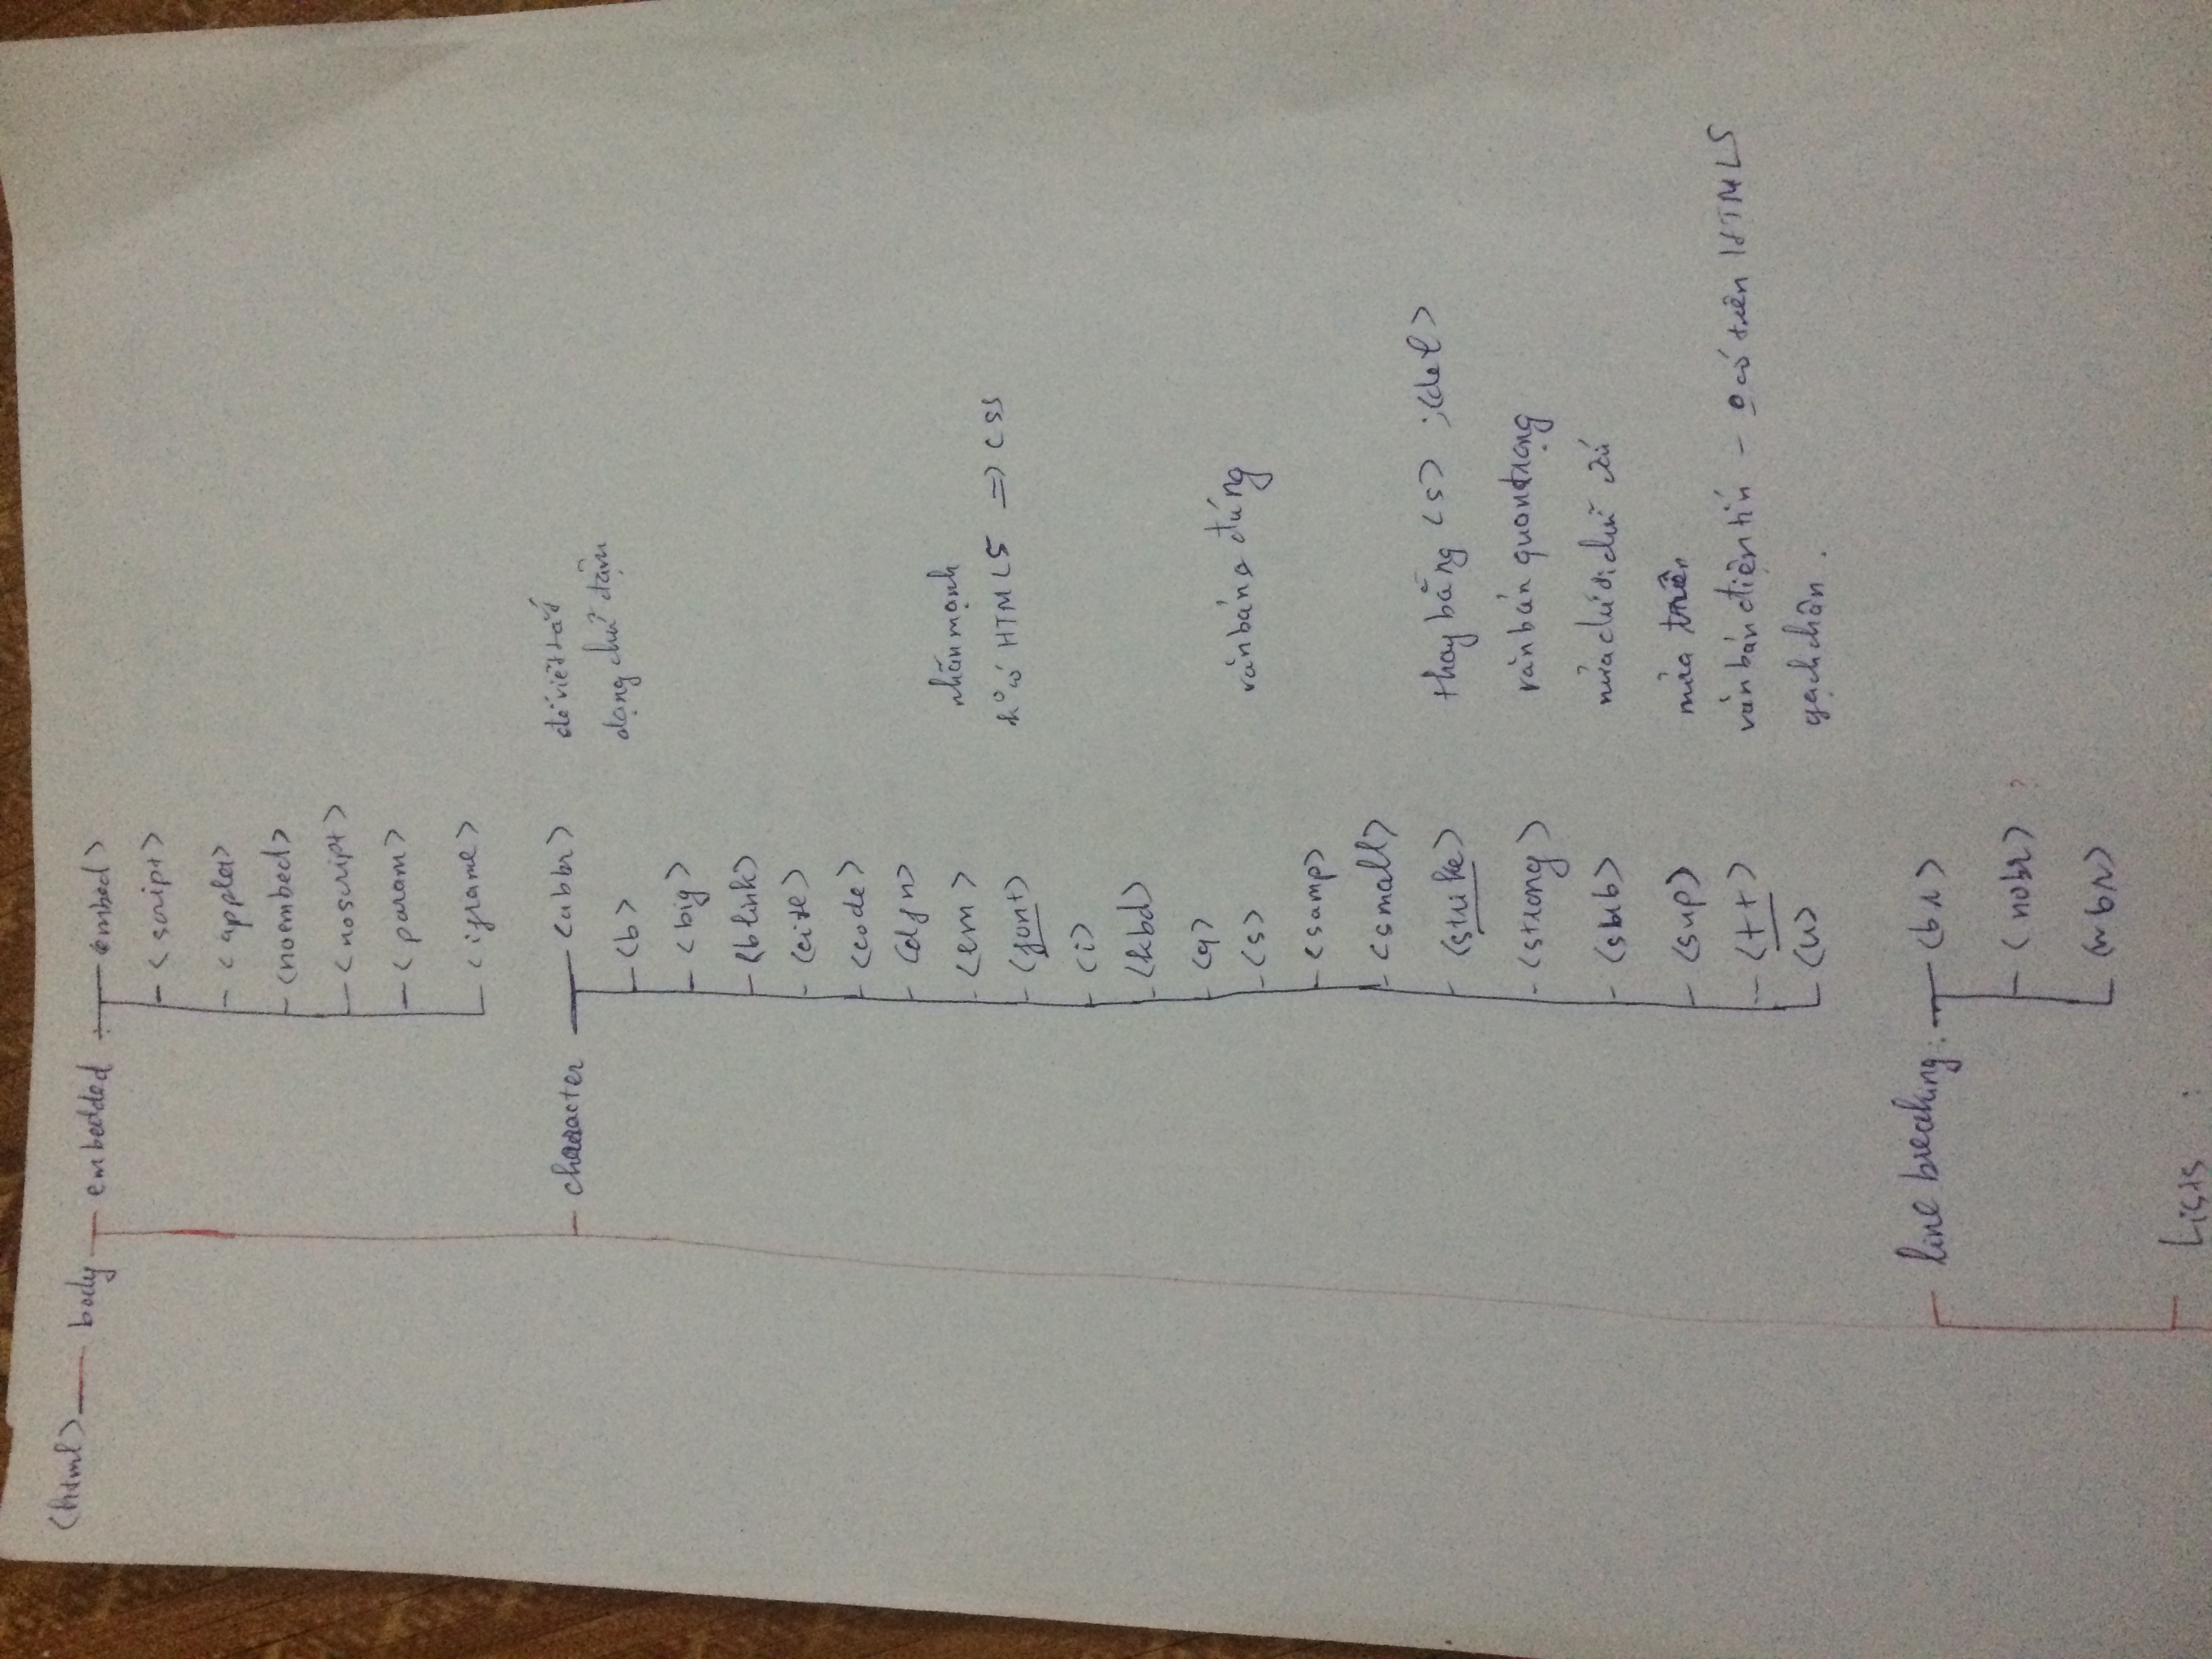 <html> body embedded : embed>
<script>
<applet>
<noembed>
<noscript>
<param>
<iframe>
character <abbr> để viết tắt
<b> dạng chữ đậm
<big>
<blink>
<cite>
<code>
<dfn>
<em> nhấn mạnh
<font> k° có HTML5 => CSS
<i>
<kbd>
<q>
<s> văn bản đúng
<samp>
<small>
<strike> thay bằng <s> ; <del>
<strong> văn bản quan trọng
<sub> nửa dưới chữ
<sup> nửa trên
<tt> văn bản điện tín - có trên HTML5
<u> gạch chân .
line breaking : <br>
<nobr> ?
<wbr>
Lists :